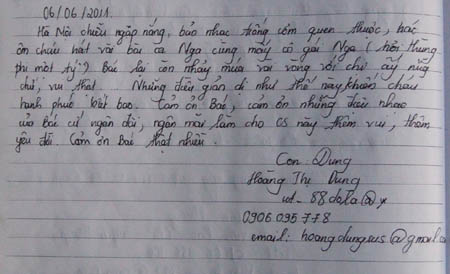 06/06/2011
Hà Nội chiều ngập nắng, bản nhạc trống cơm quen thuộc, bác
ôn cháu hát vài bài ca Nga cùng mấy cô gái Nga (hơi thùng
thì một tý)? Bác lại còn nhảy múa vài vòng với chị ấy nữa
chứ, vui thật. Những điều giản dị như thế này khiến cháu
hạnh phúc biết bao. Cảm ơn Bác, cảm ơn những điệu nhạc
của Bác cứ ngân dài, ngân mãi làm cho cs này thêm vui, thêm
yêu đời. Cảm ơn Bác thật nhiều.
Con Dung
Hoàng Thị Dung
88 dola@y
0906 095 778
email: hoangdungsus@gmail.c